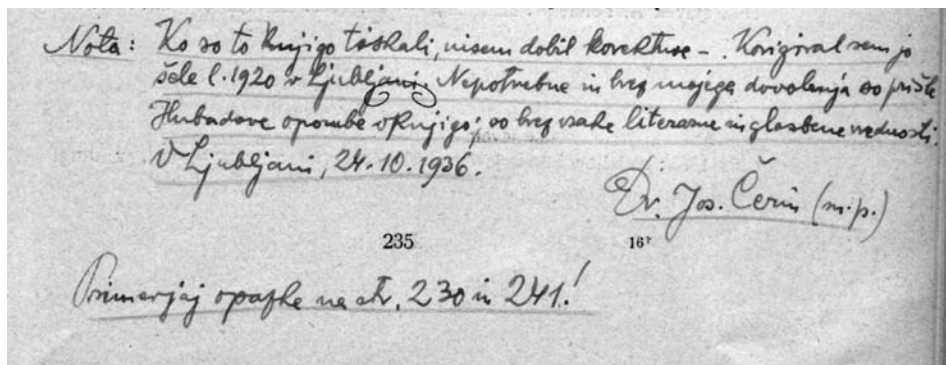 Nota: Ko so to knjigo tiskali, nisem dobil korekture –. Korigiral sem jo
šele l. 1920 v Ljubljani. Nepotrebne in brez mojega dovoljenja so prišle
Hubadove opombe v knjigo; so brez vsake literarne in glasbene vrednosti.
V Ljubljani, 24.10.1936.
Dr. Jos. Čerin (m.p.)
235
16*
Primerjaj opazke na str. 230 in 241!